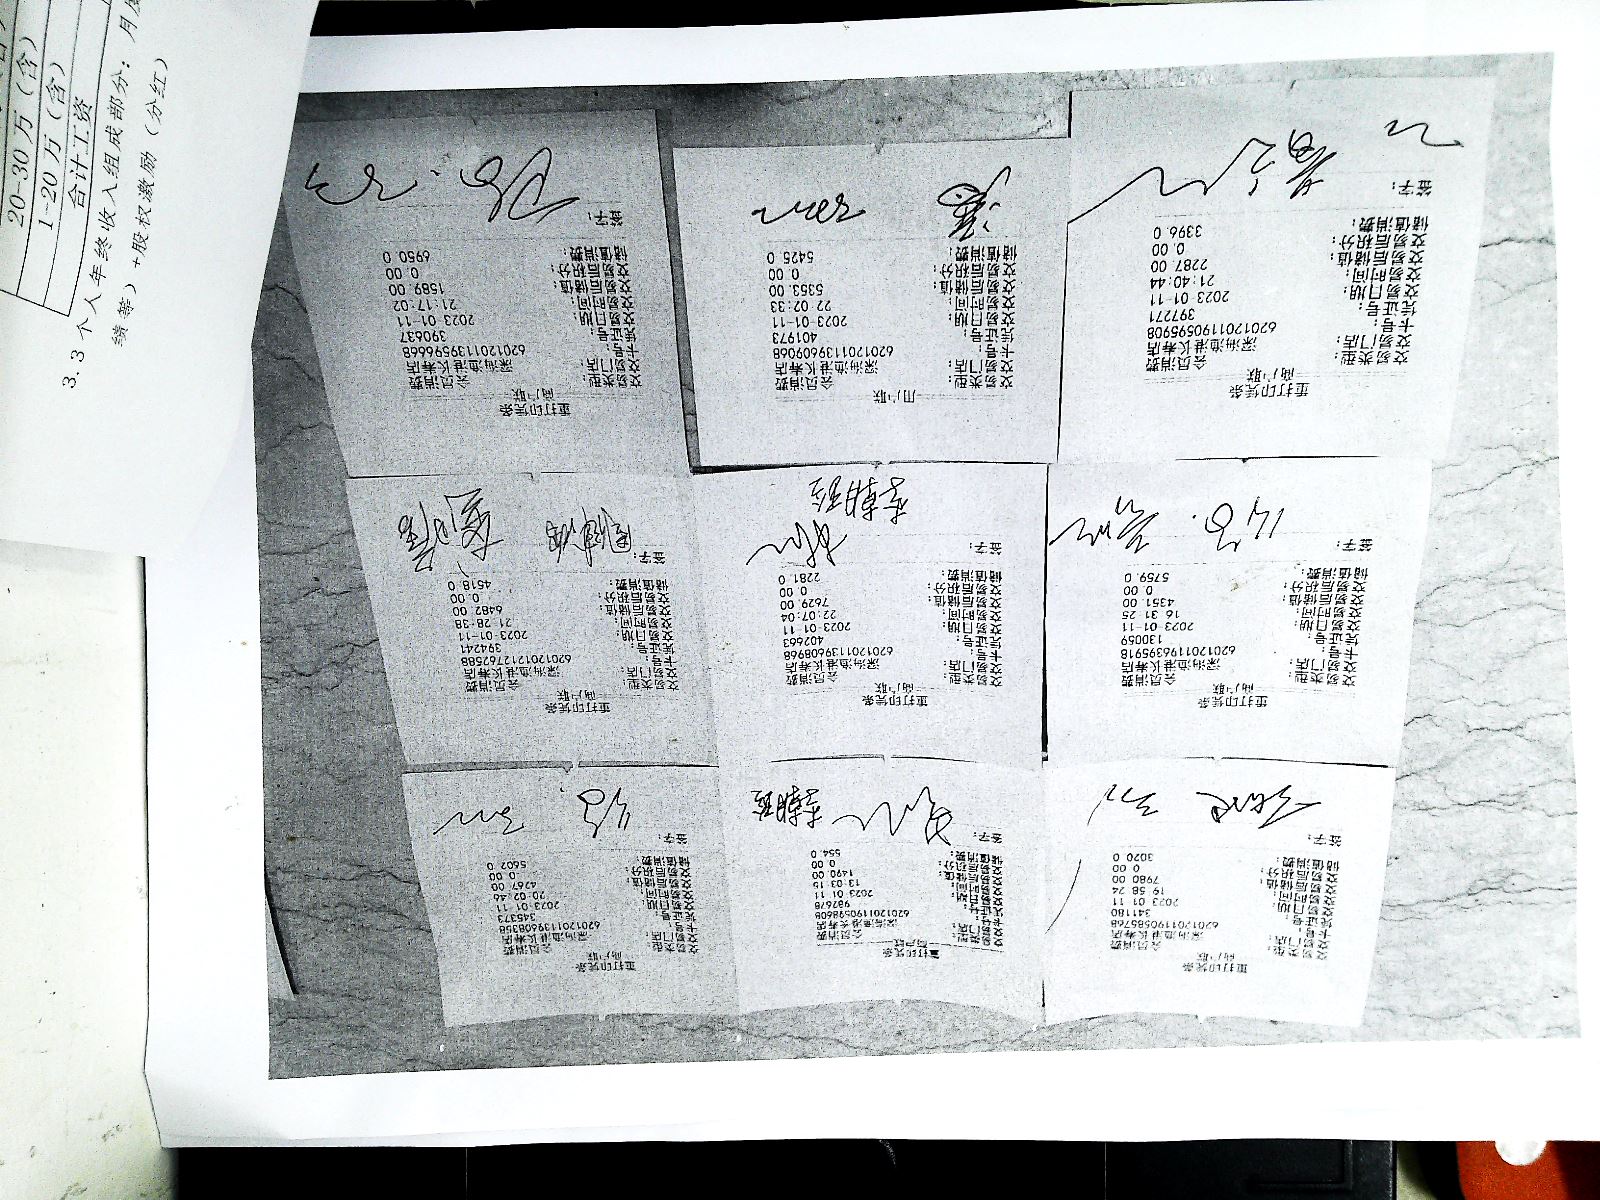 20-30万（含）
1-20万（含）
合计工资
3.3 个人年终收入组成部分：月度
绩等）+股权激励（分红）
重打印凭条
商户联
交易类型： 会员消费
交易门店： 深海渔港长寿店
卡号： 6201201190585768
凭证号： 3411180
交易日期： 2023 01 11
交易时间： 19 58 24
交易后储值： 7980 00
交易后积分： 0 00
储值消费： 3020 0
签字：
重打印凭条
商户联
交易类型： 会员消费
交易门店： 深海渔港长寿店
卡号： 6201201190598608
凭证号： 987678
交易日期： 2023 01 11
交易时间： 13 03 15
交易后储值： 1490 00
交易后积分： 0 00
储值消费： 554.0
签字：
李朝珍
重打印凭条
商户联
交易类型： 会员消费
交易门店： 深海渔港长寿店
卡号： 6201201139608368
凭证号： 345373
交易日期： 2023 01 11
交易时间： 20 02:46
交易后储值： 4267 00
交易后积分： 0 00
储值消费： 5602 0
签字：
重打印凭条
商户联
交易类型： 会员消费
交易门店： 深海渔港长寿店
卡号： 6201201196395918
凭证号： 130059
交易日期： 2023 01-11
交易时间： 16 31 25
交易后储值： 4351 00
交易后积分： 0 00
储值消费： 5759 0
签字：
重打印凭条
商户联
交易类型： 会员消费
交易门店： 深海渔港长寿店
卡号： 6201201139608968
凭证号： 402663
交易日期： 2023 01 11
交易时间： 22:07:04
交易后储值： 7629 00
交易后积分： 0 00
储值消费： 2281 0
签字：
李朝珍
重打印凭条
商户联
交易类型： 会员消费
交易门店： 深海渔港长寿店
卡号： 6201201212762588
凭证号： 394241
交易日期： 2023-01-11
交易时间： 21 28:38
交易后储值： 6482 00
交易后积分： 0 00
储值消费： 4518 0
签字：
重打印凭条
商户联
交易类型： 会员消费
交易门店： 深海渔港长寿店
卡号： 6201201190595908
凭证号： 397271
交易日期： 2023 01-11
交易时间： 21:40:44
交易后储值： 2287 00
交易后积分： 0 00
储值消费： 3396 0
签字：
用户联
交易类型： 会员消费
交易门店： 深海渔港长寿店
卡号： 6201201139609068
凭证号： 401973
交易日期： 2023 01-11
交易时间： 22 02:33
交易后储值： 5353 00
交易后积分： 0 00
储值消费： 5425 0
签字：
重打印凭条
商户联
交易类型： 会员消费
交易门店： 深海渔港长寿店
卡号： 6201201139596668
凭证号： 390637
交易日期： 2023 01-11
交易时间： 21:17:02
交易后储值： 1589 00
交易后积分： 0 00
储值消费： 6950 0
签字：